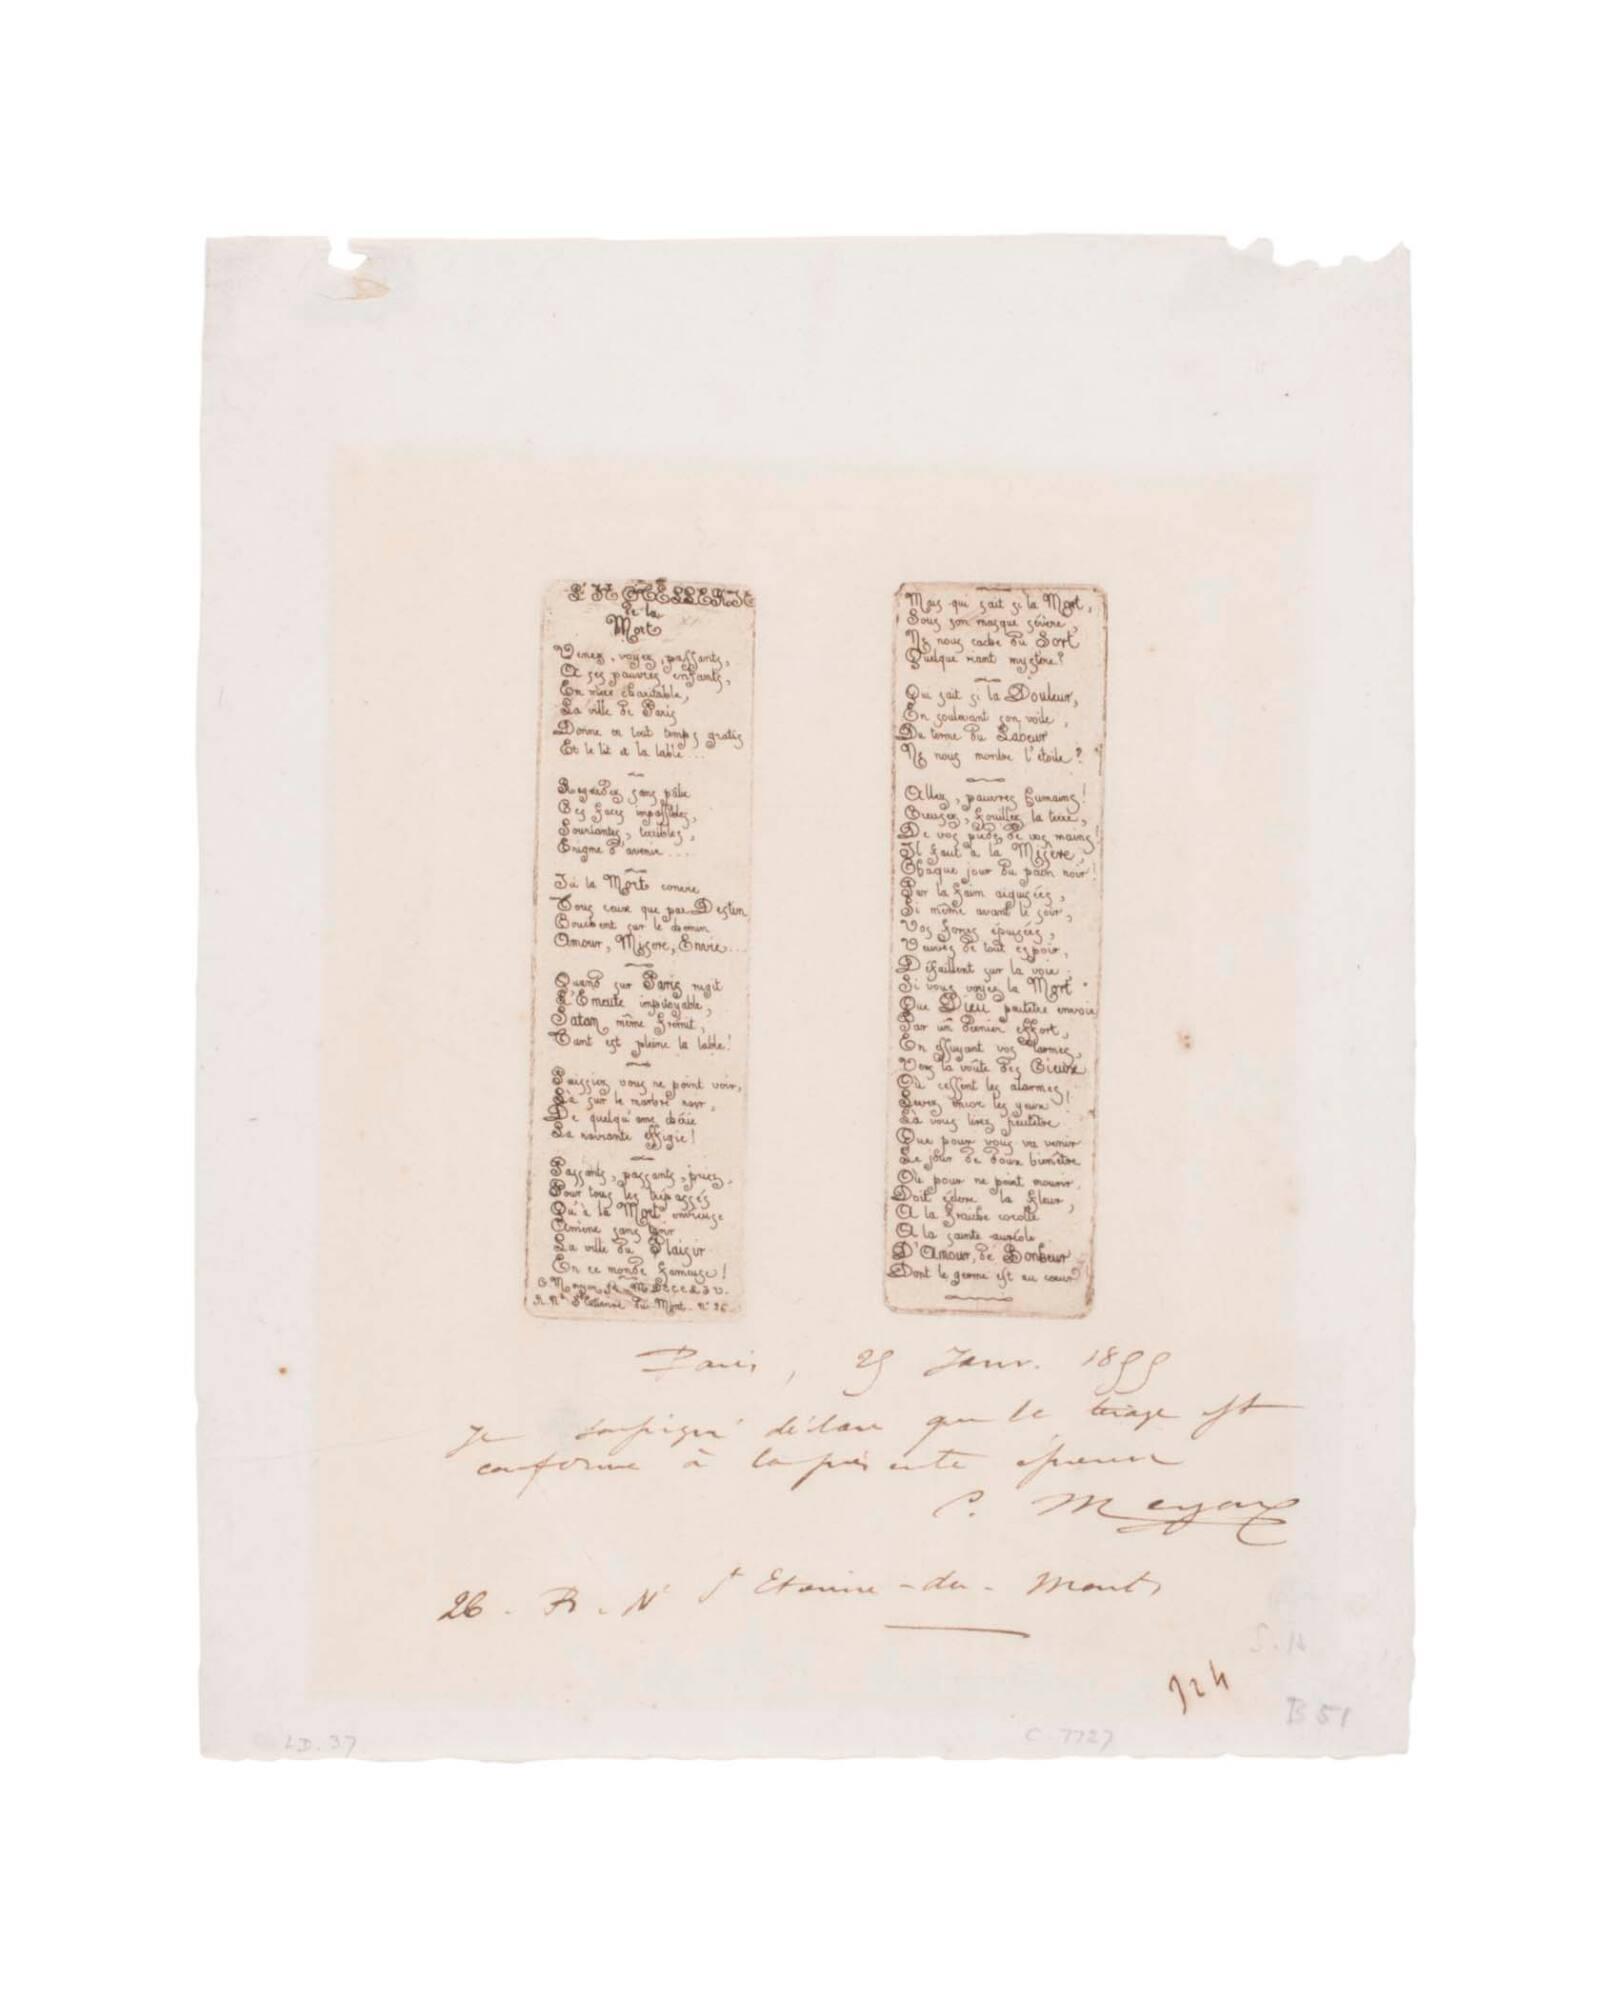 L'HÔTELLERIE
de la
Mort
Venez, voyez, passants,
A ses pauvres enfants,
En mère charitable,
La ville de Paris
Donne en tout temps gratis
Et le lit et la table...
Regardez sans pâlir
Ces faces impassibles,
Souriantes, terribles,
Enigme d'avenir....
Ici la Mort convie
Tous ceux que par Destin
Couchent sur le chemin
Amour, Misère, Envie...
Quand sur Paris rugit
L'Emeute impitoyable,
Satan même frémit,
Tant est pleine la table!
Puissiez vous ne point voir,
Là sur le marbre noir,
De quelqu'ame chérie
La navrante effigie!
Passants, passants, priez,
Pour tous les trépassés
Qu'à la Mort
Amène sans finir
La ville du Plaisir
En ce monde fameuse!
C. Meryon
R. Ne St Etienne du Mont. No 26.
Mais qui sait si la Mort,
Sous son masque sévère,
Ne nous cache du Sort
Quelque riant mystère?
Qui sait si la Douleur,
En soulevant son voile,
Du terme du Labeur
Ne nous montre l'étoile?
Allez, pauvres humains!
Creusez, fouillez la terre,
De vos pieds, de vos mains!
Il faut à la Misère,
Chaque jour du pain noir!
Par la faim aiguisées,
Si même avant le soir,
Vos forces épuisées,
Veuves de tout espoir,
Défaillent sur la voie;
Si vous voyez la Mort
Que Dieu peutêtre envoie
Par un dernier effort,
En essuyant vos larmes,
Vers la voûte des Cieux
Où cessent les alarmes,
Levez encor les yeux!
Là vous lirez peutêtre
Que pour vous va venir
Le jour de doux bienêtre
Où pour ne point mourir,
Doit éclore la fleur,
A la fraiche corolle
A la sainte auréole
D'Amour, de Bonheur
Dont le germe est au coeur
Paris, 25 Janv. 1855
Je soussigné déclare que le tirage est
conforme à la présente épreuve
C. Meryon
26. R. Ne St Etienne-du-Mont
324
S. 14
B 51
LD. 37
C. 7727